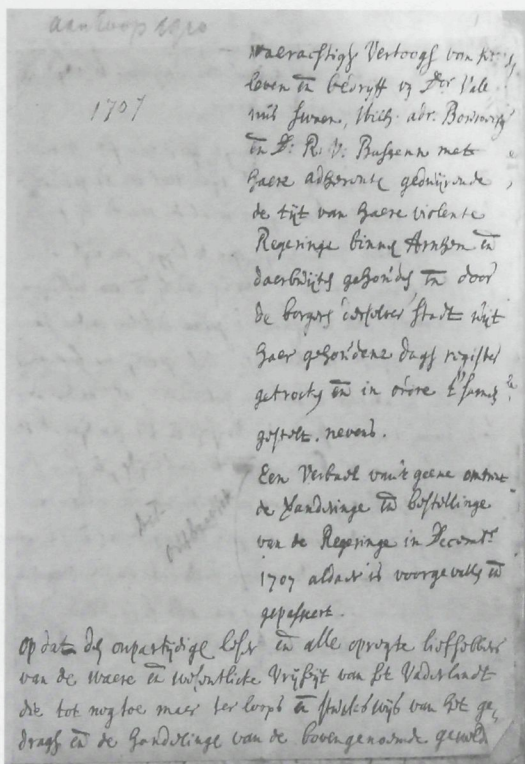 aankoop 1920
1707
Waerachtigh Vertoogh van het
leven en bedryff v
Wilh. adr. Bouwens
en D. R. V. Bassenn met
haere adherente geduijrende
de tijt van haere violente
Regeringe binnen Arnhem en
daerbuijten gehouden en door
de borgers derselver stadt uijt
haer gehoudene dagh register
getrocken en in ordre t'samen
gestelt. nevens.
Een Verbael van't geene omtrent
de handelinge en bestellinge
van de Regeringe in Decembr
1707 aldaer is voorgevallen en
gepasseert.
op dat den onpartijdige leser en alle opregte liefhebbers
van de waere en wesentlicke Vrijheijt van het Vaderlandt
die tot nog toe maer ter loops en stuckswijs van het ge,
dragh en de handelinge van de bovengenoemde